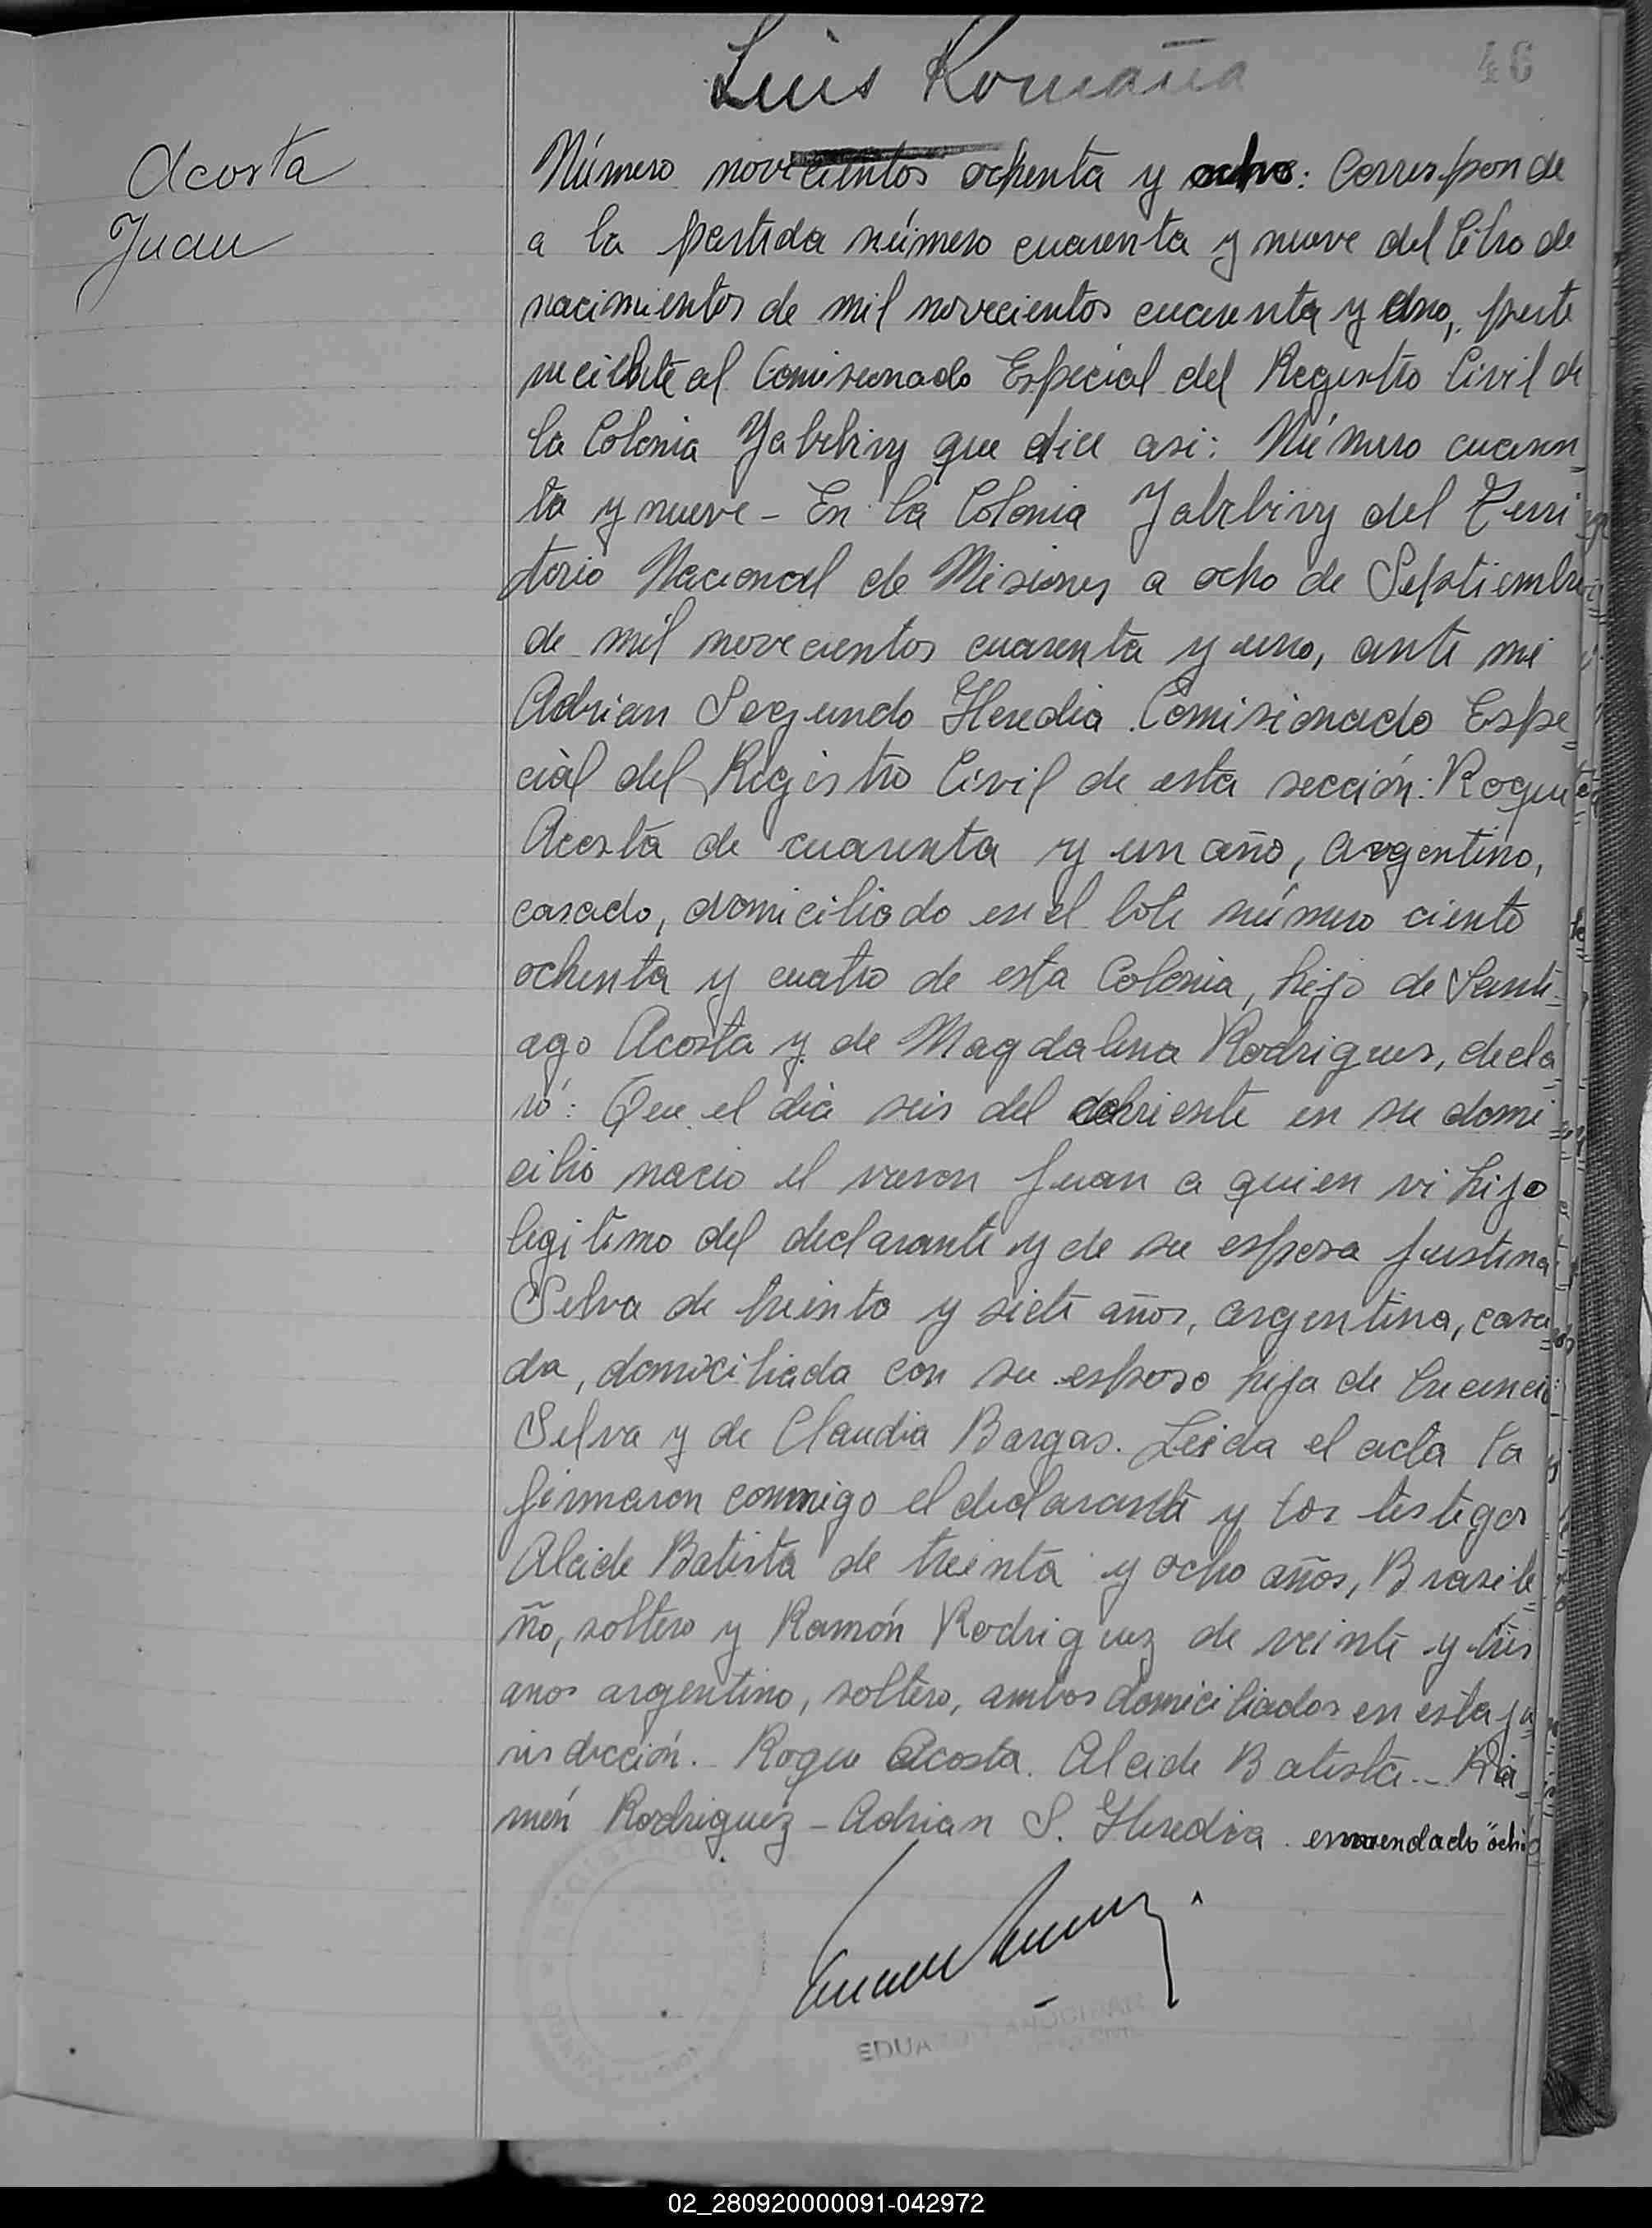 Luis Romaña
46
Acosta
Juan
Número novecientos ochenta y ocho: Corresponde
a la partida número cuarenta y nueve del libro de
nacimientos de mil novecientos cuarenta y uno, perte
neciente al Comisionado Especial del Registro Civil de
la Colonia Yabebiry que dice asi: Número cuaren_
ta y nueve - En la Colonia Yabebiry del Terri
torio Nacional de Misiones a ocho de Septiembre
de mil novecientos cuarenta y uno, ante mi
Adrian Segundo Heredia Comisionado Espe_
cial del Registro Civil de esta sección: Roque
Acosta de cuarenta y un año, argentino,
casado, domiciliado en el lote número ciento
ochenta y cuatro de esta Colonia, hijo de Santi_
ago Acosta y de Magdalena Rodrigues, decla_
ró: Que el dia seis del corriente en su domi_
cilio nacio el varon Juan a quien vi hijo
legitimo del declarante y de su esposa Justina
Selva de treinta y siete años, argentina, casa_
da, domiciliada con su esposo hija de
Selva y de Claudia Bargas. Leida el acta la
firmaron conmigo el declarante y los testigos
Alcide Batista de treinta y ocho años, Brasile_
ño, soltero y Ramón Rodriguez de veinte y tres
anos argentino, soltero, ambos domiciliados en esta ju_
risdicción. Roque Acosta. Alcide Batista.- Ra_
món Rodriguez - Adrian S. Heredia. enmendado "ocho
EDUA
02_280920000091-042972